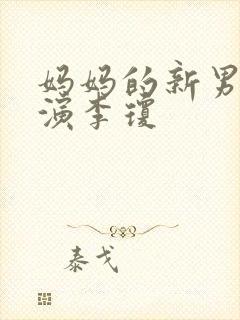 妈妈的新男
演李琼
泰戈